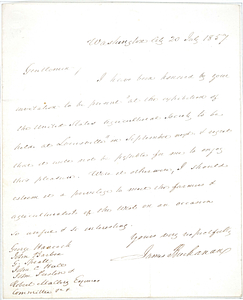 Washington City 20 July 1857
Gentlemen,
I have been honored by your
invitation to be present "at the exhibition of
the United States Agricultural Society to be
held at Louisville" in September next & regret
that it will not be possible for me to enjoy
this pleasure. Was it otherwise, I should
esteem it a privilege to meet the farmers &
agriculturists of the West on an occasion
so
Yours very respectfully
James Buchanan
George Hancock
John
Robert Mallory Esquires
Committee &c